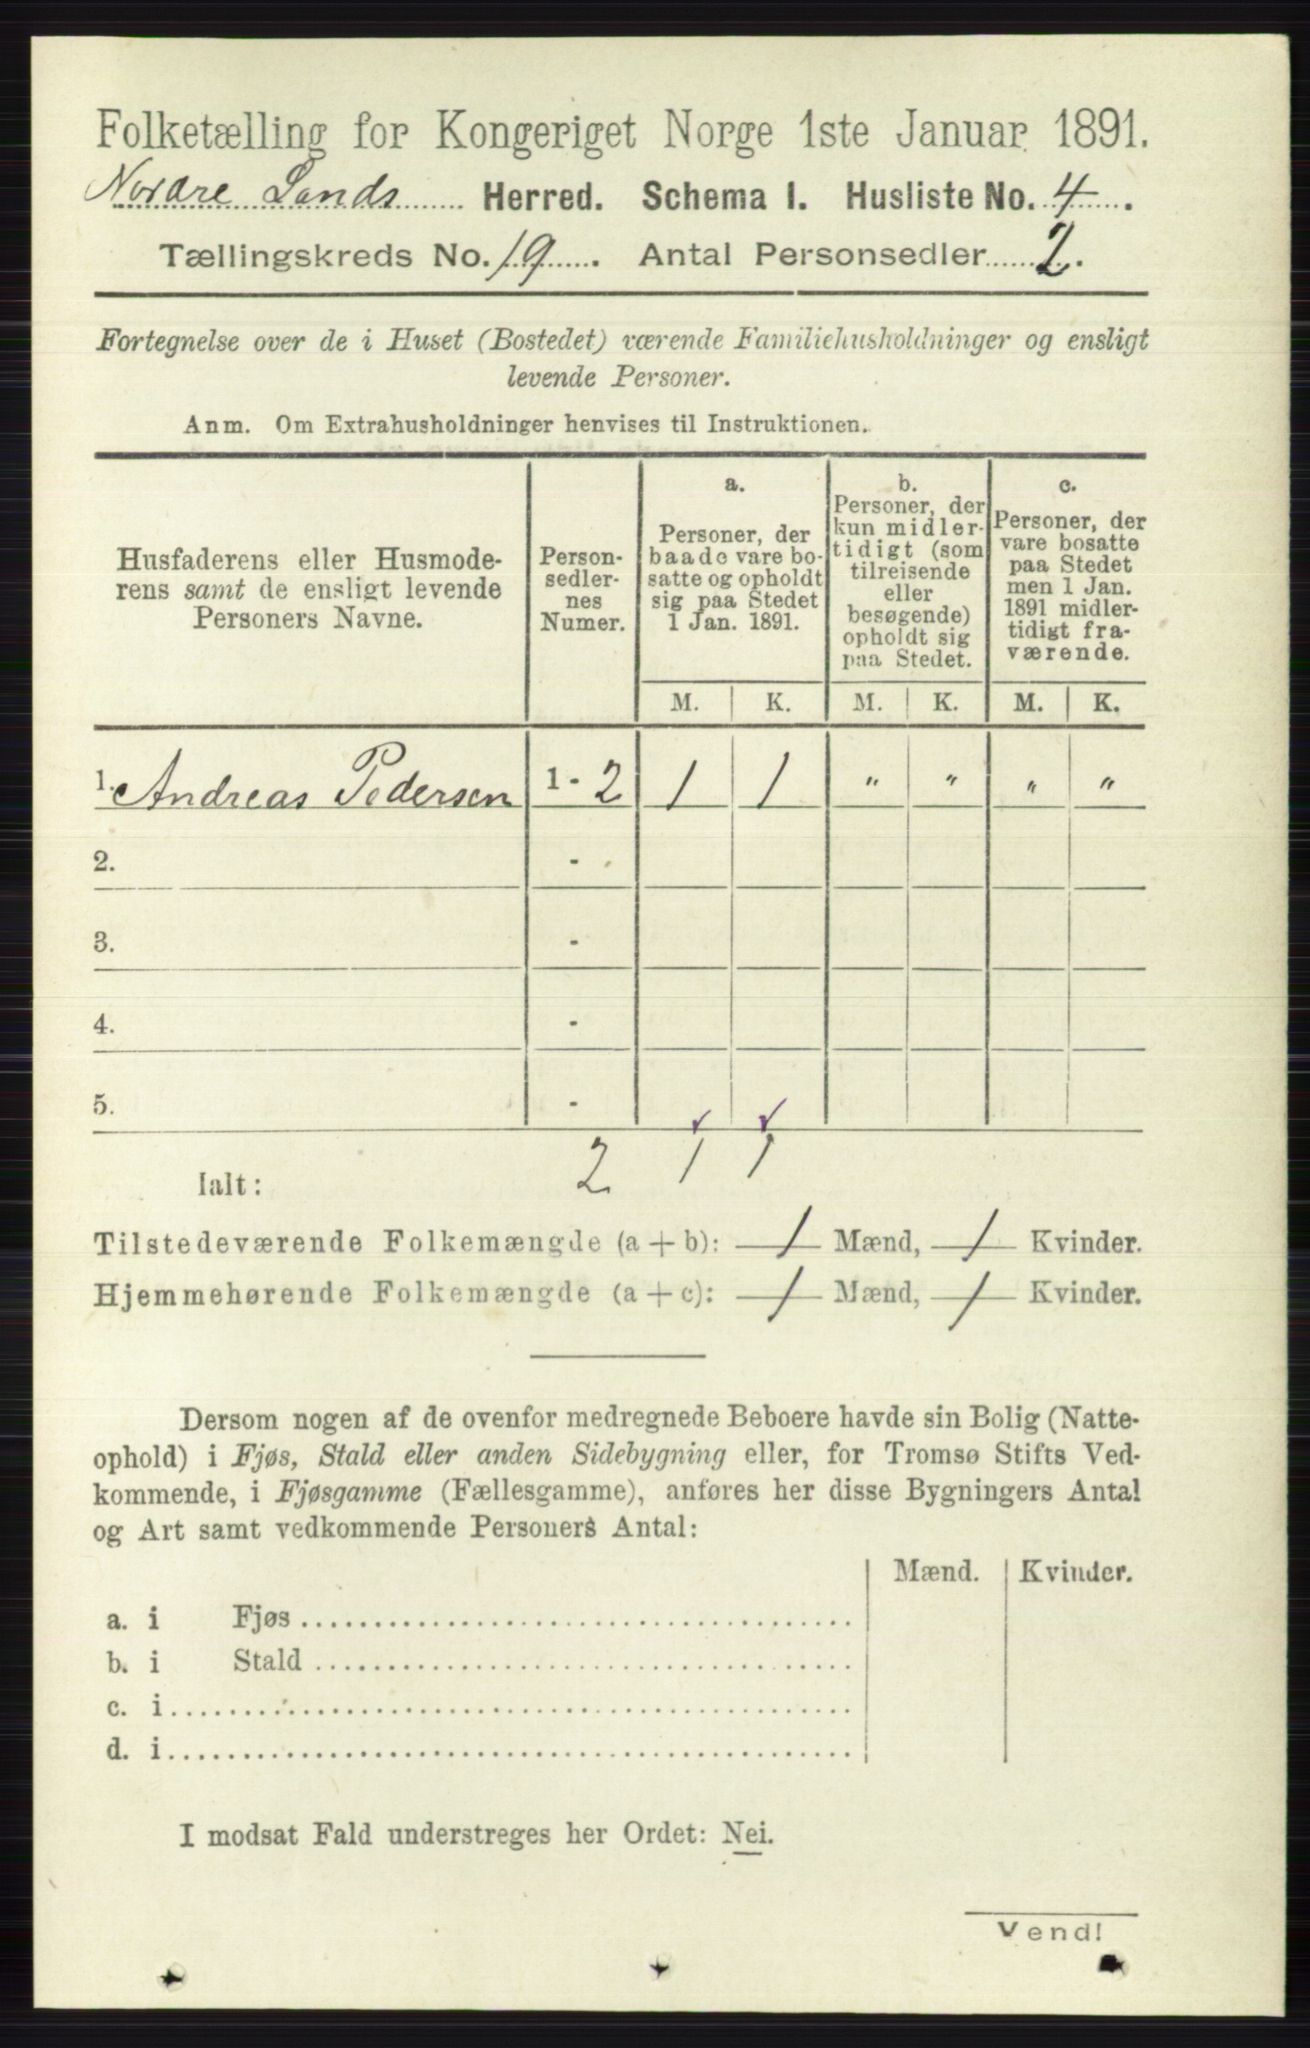 Folketælling for Kongeriget Norge 1ste Januar 1891.
Nordre Lands Herred. Schema I. Husliste No. 4.
Tællingskreds No. 19. Antal Personsedler 2.
Fortegnelse over de i Huset (Bostedet) værende Familiehusholdninger og ensligt
levende Personer.
Anm. Om Extrahusholdninger henvises til Instruktionen.
Husfaderens eller Husmode-
rens samt de ensligt levende
Personers Navne.
Person-
sedler-
nes
Numer.
a.
Personer, der
baade vare bo-
satte og opholdt
sig paa Stedet
1 Jan. 1891.
b.
Personer, der
kun midler-
tidigt (som
tilreisende
eller
besøgende)
opholdt sig
paa Stedet.
c.
Personer, der
vare bosatte
paa Stedet
men 1 Jan.
1891 midler-
tidigt fra-
værende.
M. K. M. K. M. K.
1. Andreas Pedersen 1 - 2 1 1 " " " "
2. -
3. -
4. -
5. -
Ialt: 2 1 1
Tilstedeværende Folkemængde (a + b): 1 Mænd, 1 Kvinder.
Hjemmehørende Folkemængde (a + c): 1 Mænd, 1 Kvinder.
Dersom nogen af de ovenfor medregnede Beboere havde sin Bolig (Natte-
ophold) i Fjøs, Stald eller anden Sidebygning eller, for Tromsø Stifts Ved-
kommende, i Fjøsgamme (Fællesgamme), anføres her disse Bygningers Antal
og Art samt vedkommende Personers Antal:
Mænd. Kvinder.
a. i Fjøs
b. i Stald
c. i
d. i
I modsat Fald understreges her Ordet: Nei.
Vend!